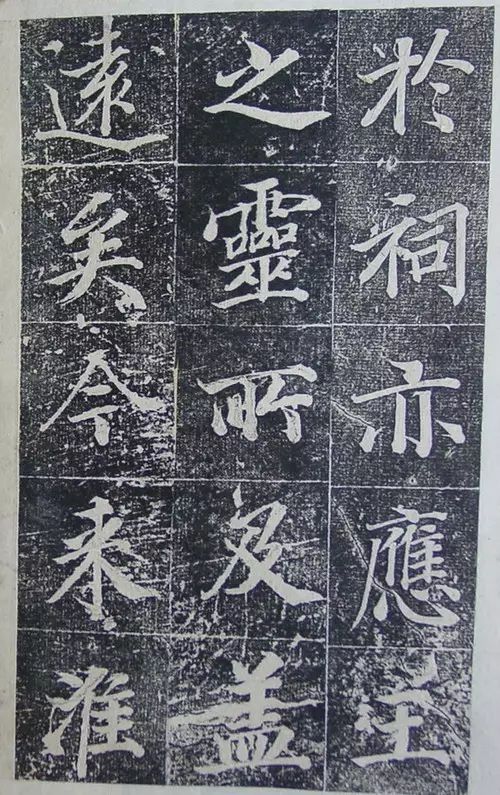 於祠亦應王
之靈所及盖
遠矣今来淮